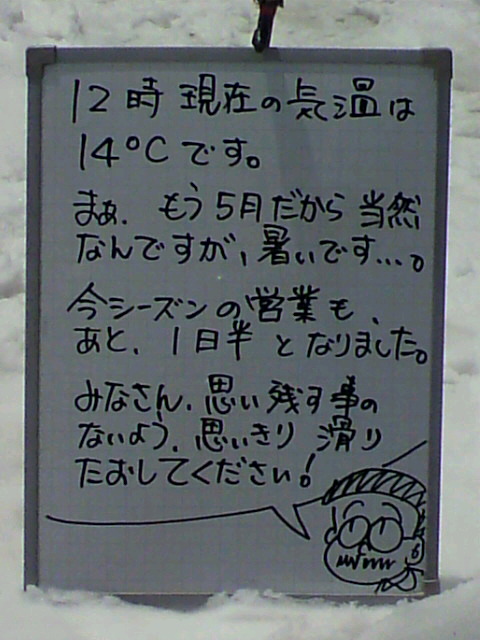 12時現在の気温は
14°Cです。
まぁ、もう5月だから当然
なんですが、暑いです…。
今シーズンの営業も、
あと、1日半となりました。
みなさん、思い残す事の
ないよう、思いきり滑り
たおしてください!